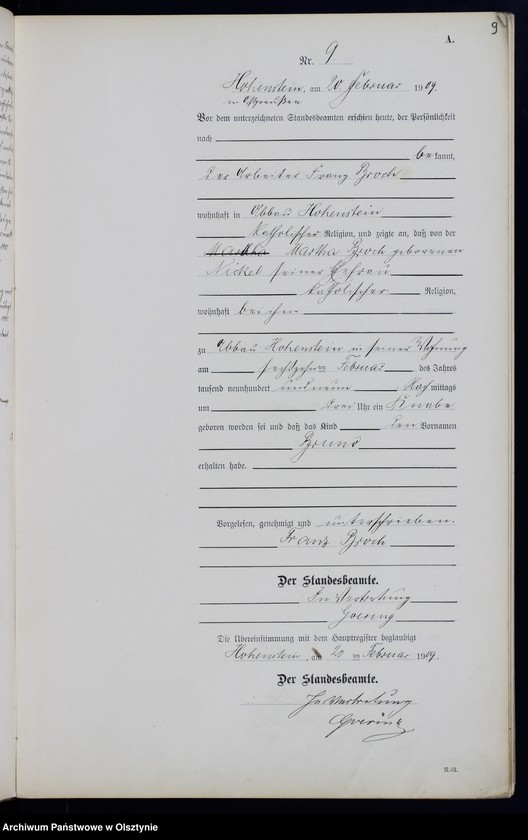 9
A.
Nr. 9
Hohenstein, am 20 Februar 1909.
in Ostpreußen
Vor dem unterzeichneten Standesbeamten erschien heute, der Persönlichkeit
nach
bekannt,
der Arbeiter Franz Broch
wohnhaft in Abbau Hohenstein
katholischer Religion, und zeigte an, daß von der
Martha Martha Broch geborenen
Nickel seiner Ehefrau
katholischer Religion,
wohnhaft bei ihm
zu Abbau Hohenstein in seiner Wohnung
am sechszehnten Februar des Jahres
tausend neunhundert und neun Nachmittags
um drei Uhr ein Knabe
geboren worden sei und daß das Kind den Vornamen
Bruno
erhalten habe.
Vorgelesen, genehmigt und unterschrieben.
Franz Broch
Der Standesbeamte.
In Vertretung
Goering
Die Übereinstimmung mit dem Hauptregister beglaubigt
Hohenstein, am 20 ten Februar 1909.
Der Standesbeamte.
In Vertretung
Goering
Archiwum Państwowe w Olsztynie